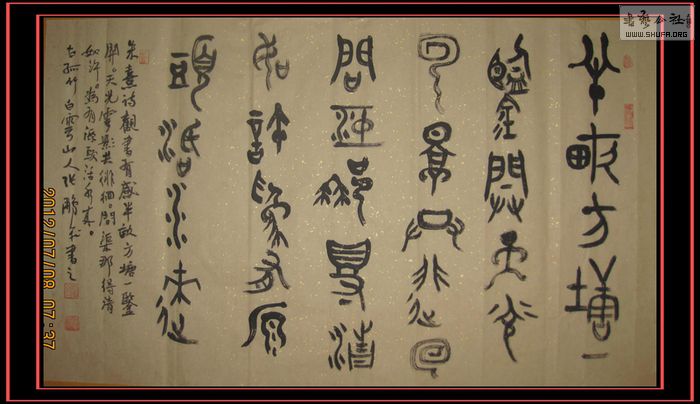 半畝方塘一
鑑開天光
云影共徘徊
問渠那得清
如許為有源
頭活水來
朱熹詩觀書有感半畝方塘一鑒
開。天光雲影共徘徊。問渠那得清
如許。為有源頭活水來。
古孤竹白雲山人張鵬書之
2012/07/08 07:37
書法公社
WWW.SHUFA.ORG